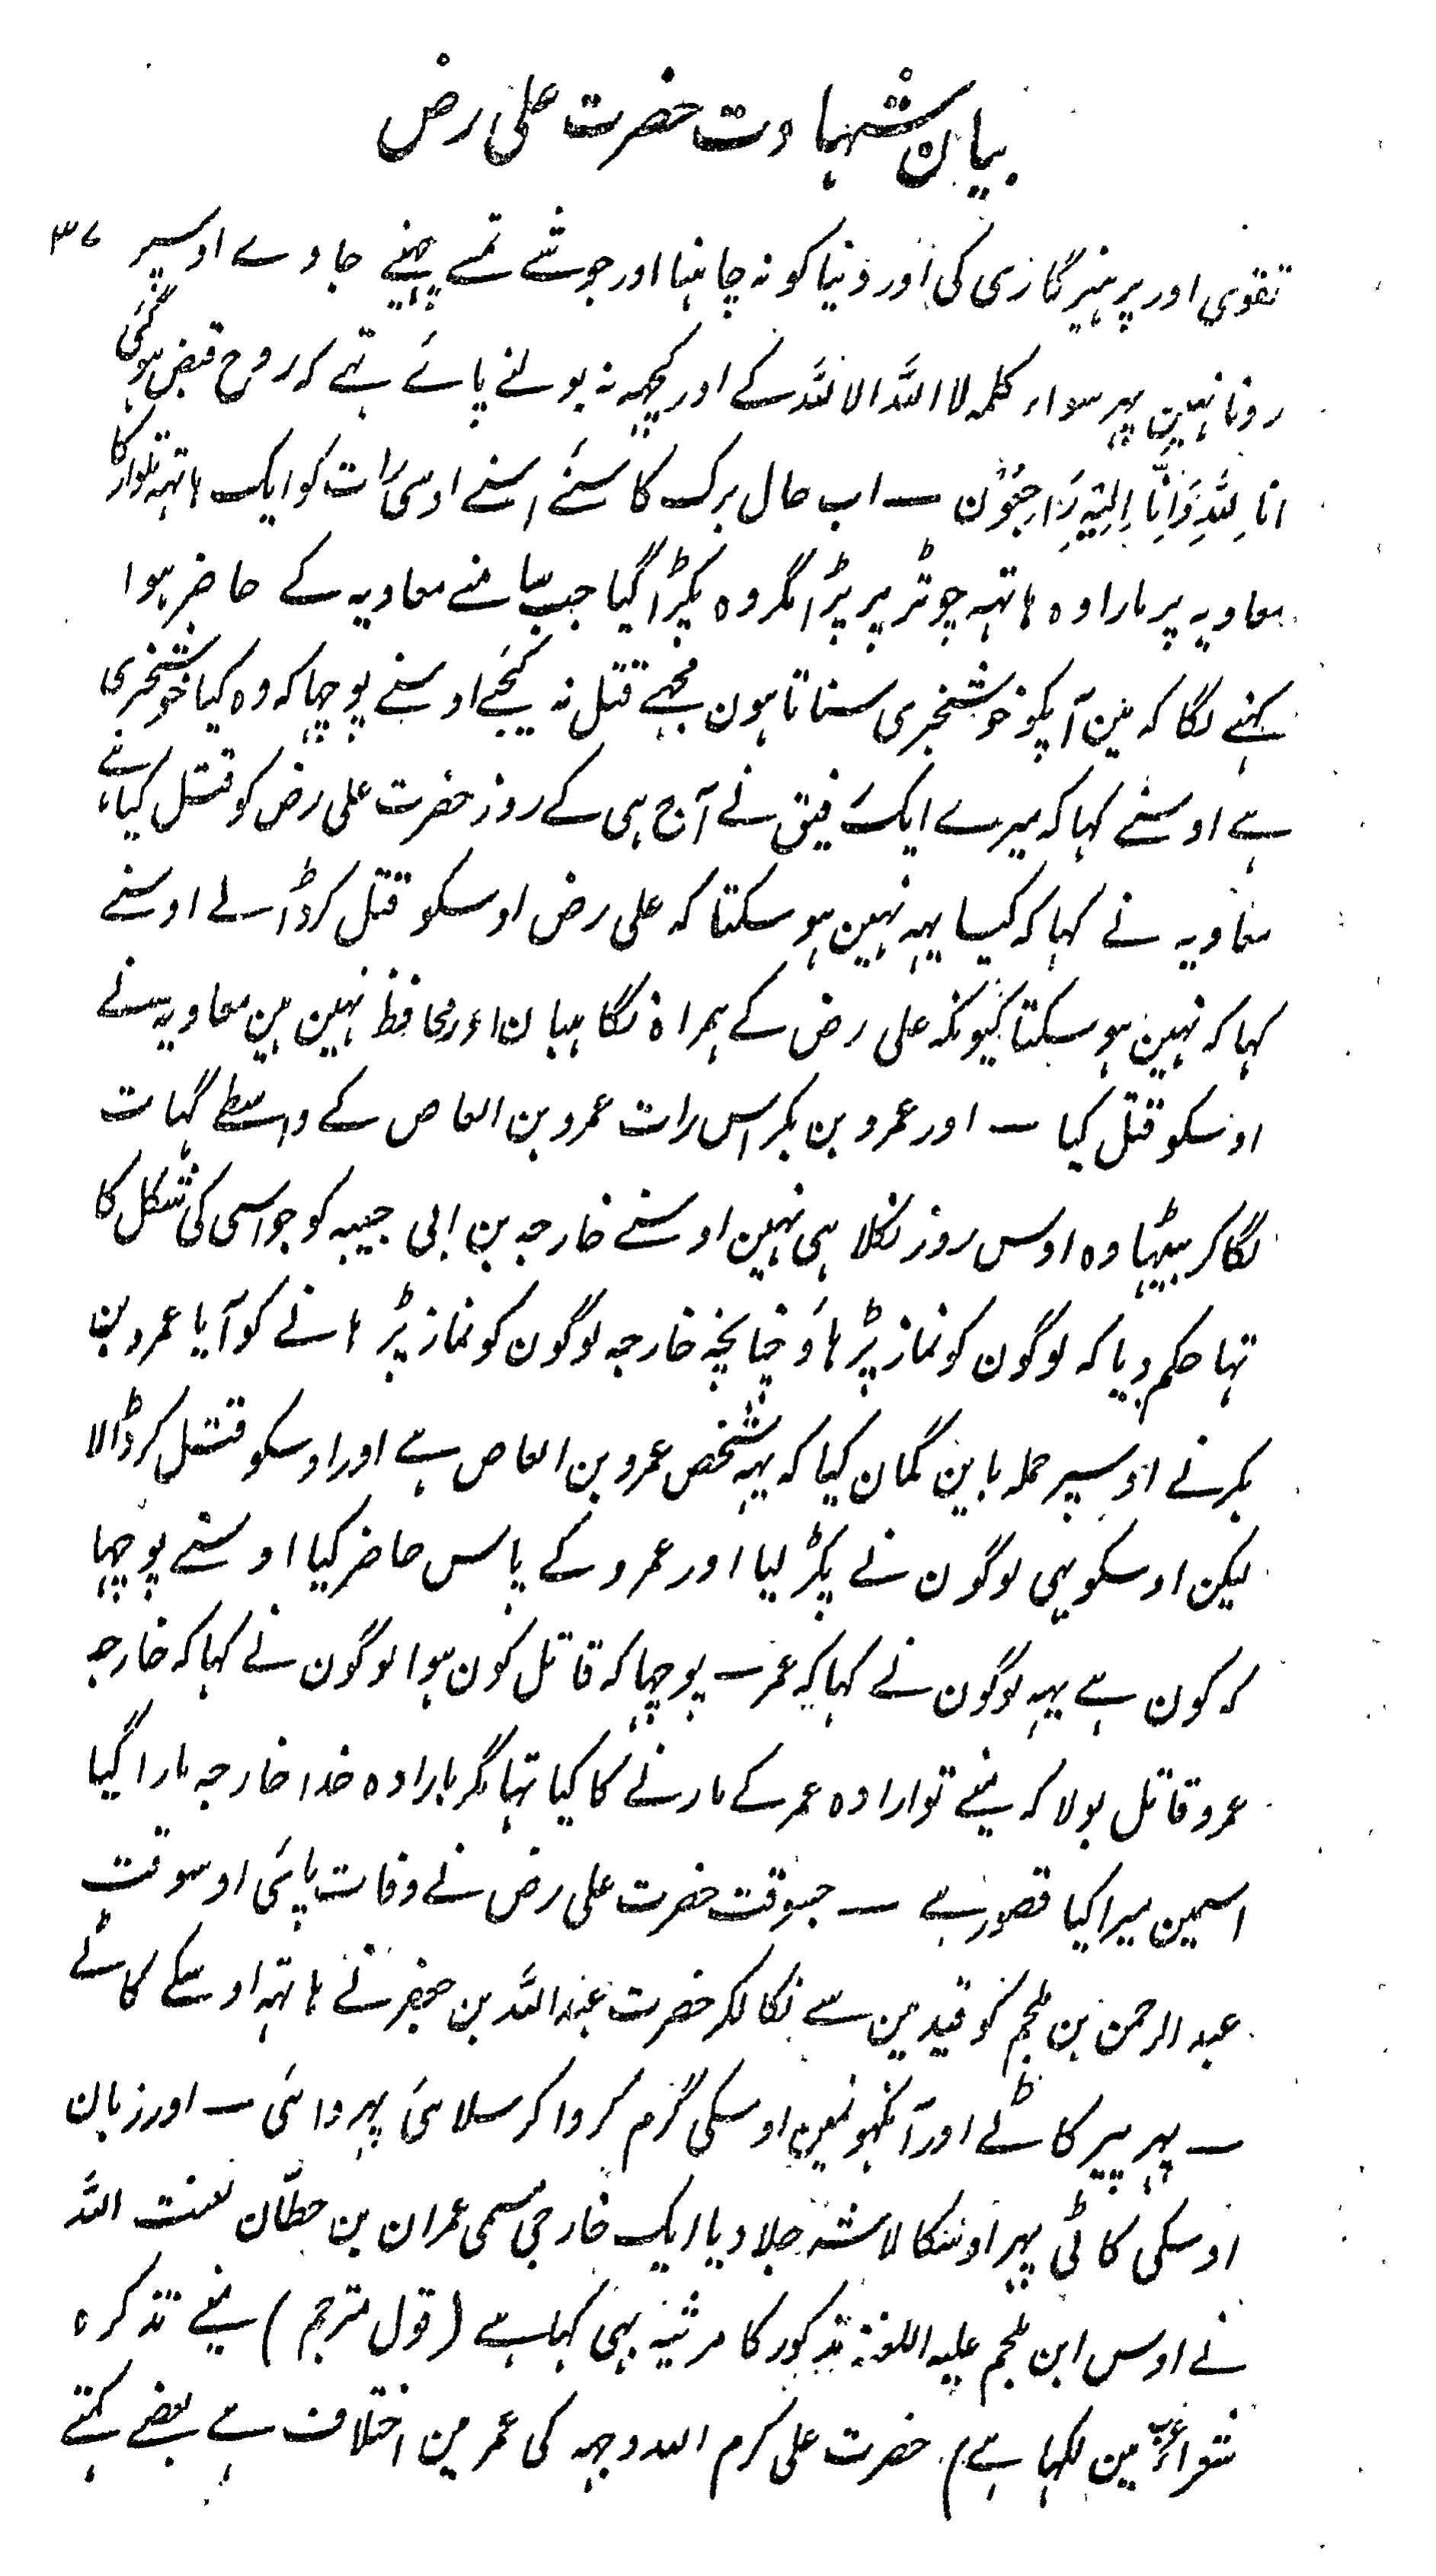 بیان شہادت حضرت علی رض
۳۷
تقوی اور پرہیزگاری کی اور دنیا کو نہ چاہنا اور جو شے تمسے چھنے جاوے اوسپر
رونا نہین پہر سواء کلمہ لا اللہ الا للہ کے اور کچہہ نہ بولنے پائے تہے کہ روح قبض ہوگئی
انا للّٰہِ وَاِنَّا اِلَیْہِ رَاجِعُوْن ــ اب حال برک کا سنئے اسنے اوسی رات کو ایک ہاتہہ تلوار کا
معاویہ پر مارا وہ ہاتہہ چوتڑ پر پڑا مگر وہ پکڑا گیا جب سامنے معاویہ کے حاضر ہوا
کہنے لگا کہ مین آپکو خوشخبری سناتا ہون مجہے قتل نہ کیجے اوسنے پوچہا کہ وہ کیا خوشخبری
ہے اوسنے کہا کہ میرے ایک رفیق نے آج ہی کے روز حضرت علی رض کو قتل کیا ہے
معاویہ نے کہا کہ کیسا یہہ نہین ہو سکتا کہ علی رض اوسکو قتل کر ڈالے اوسنے
کہا کہ نہین ہو سکتا کیونکہ علی رض کے ہمراہ نگاہبان اور محافظ نہین ہین معاویہ نے
اوسکو قتل کیا ــ اور عمرو بن بکر اس رات عمرو بن العاص کے واسطے گہات
لگا کر بیٹہا وہ اوس روز نکلا ہی نہین اوسنے خارجہ بن ابی حبیبہ کو جو اسی کی شکل کا
تہا حکم دیا کہ لوگون کو نماز پڑہاؤ چنانچہ خارجہ لوگون کو نماز پڑہانے کو آیا عمرو بن
بکر نے اوسپر حملہ باین گمان کیا کہ یہہ شخص عمرو بن العاص ہے اور اوسکو قتل کر ڈالا
لیکن اوسکو بہی لوگون نے پکڑ لیا اور عمرو کے پاس حاضر کیا اوسنے پوچہا
کہ کون ہے یہہ لوگون نے کہا کہ عمر ــ پوچہا کہ قاتل کون ہوا لوگون نے کہا کہ خارجہ
عمرو قاتل بولا کہ مینے تو ارادہ عمر کے مارنے کا کیا تہا مگر بارادہ خدا خارجہ مارا گیا
اسمین میرا کیا قصور ہے ــ جسوقت حضرت علی رض نے وفات پائی اوسوقت
عبد الرحمن بن ملجم کو قید مین سے نکالکر حضرت عبد اللہ بن جعفر نے ہاتہہ اوسکے کاٹے
ــ پہر پیر کاٹے اور آنکہونمین اوسکی گرم کروا کر سلائی پہروائی ــ اور زبان
اوسکی کاٹی پہر اوسکا لاشہ جلا دیا ایک خارجی مسمی عمران بن حطّان لعنت اللہ
نے اوس ابن ملجم علیہ اللعنۃ مذکور کا مرثیہ بہی کہا ہے ( قول مترجم ) مینے تذکرہ
شعراء عرب مین لکہا ہے ) حضرت علی کرم اللہ وجہہ کی عمر مین اختلاف ہے بعضے کہتے